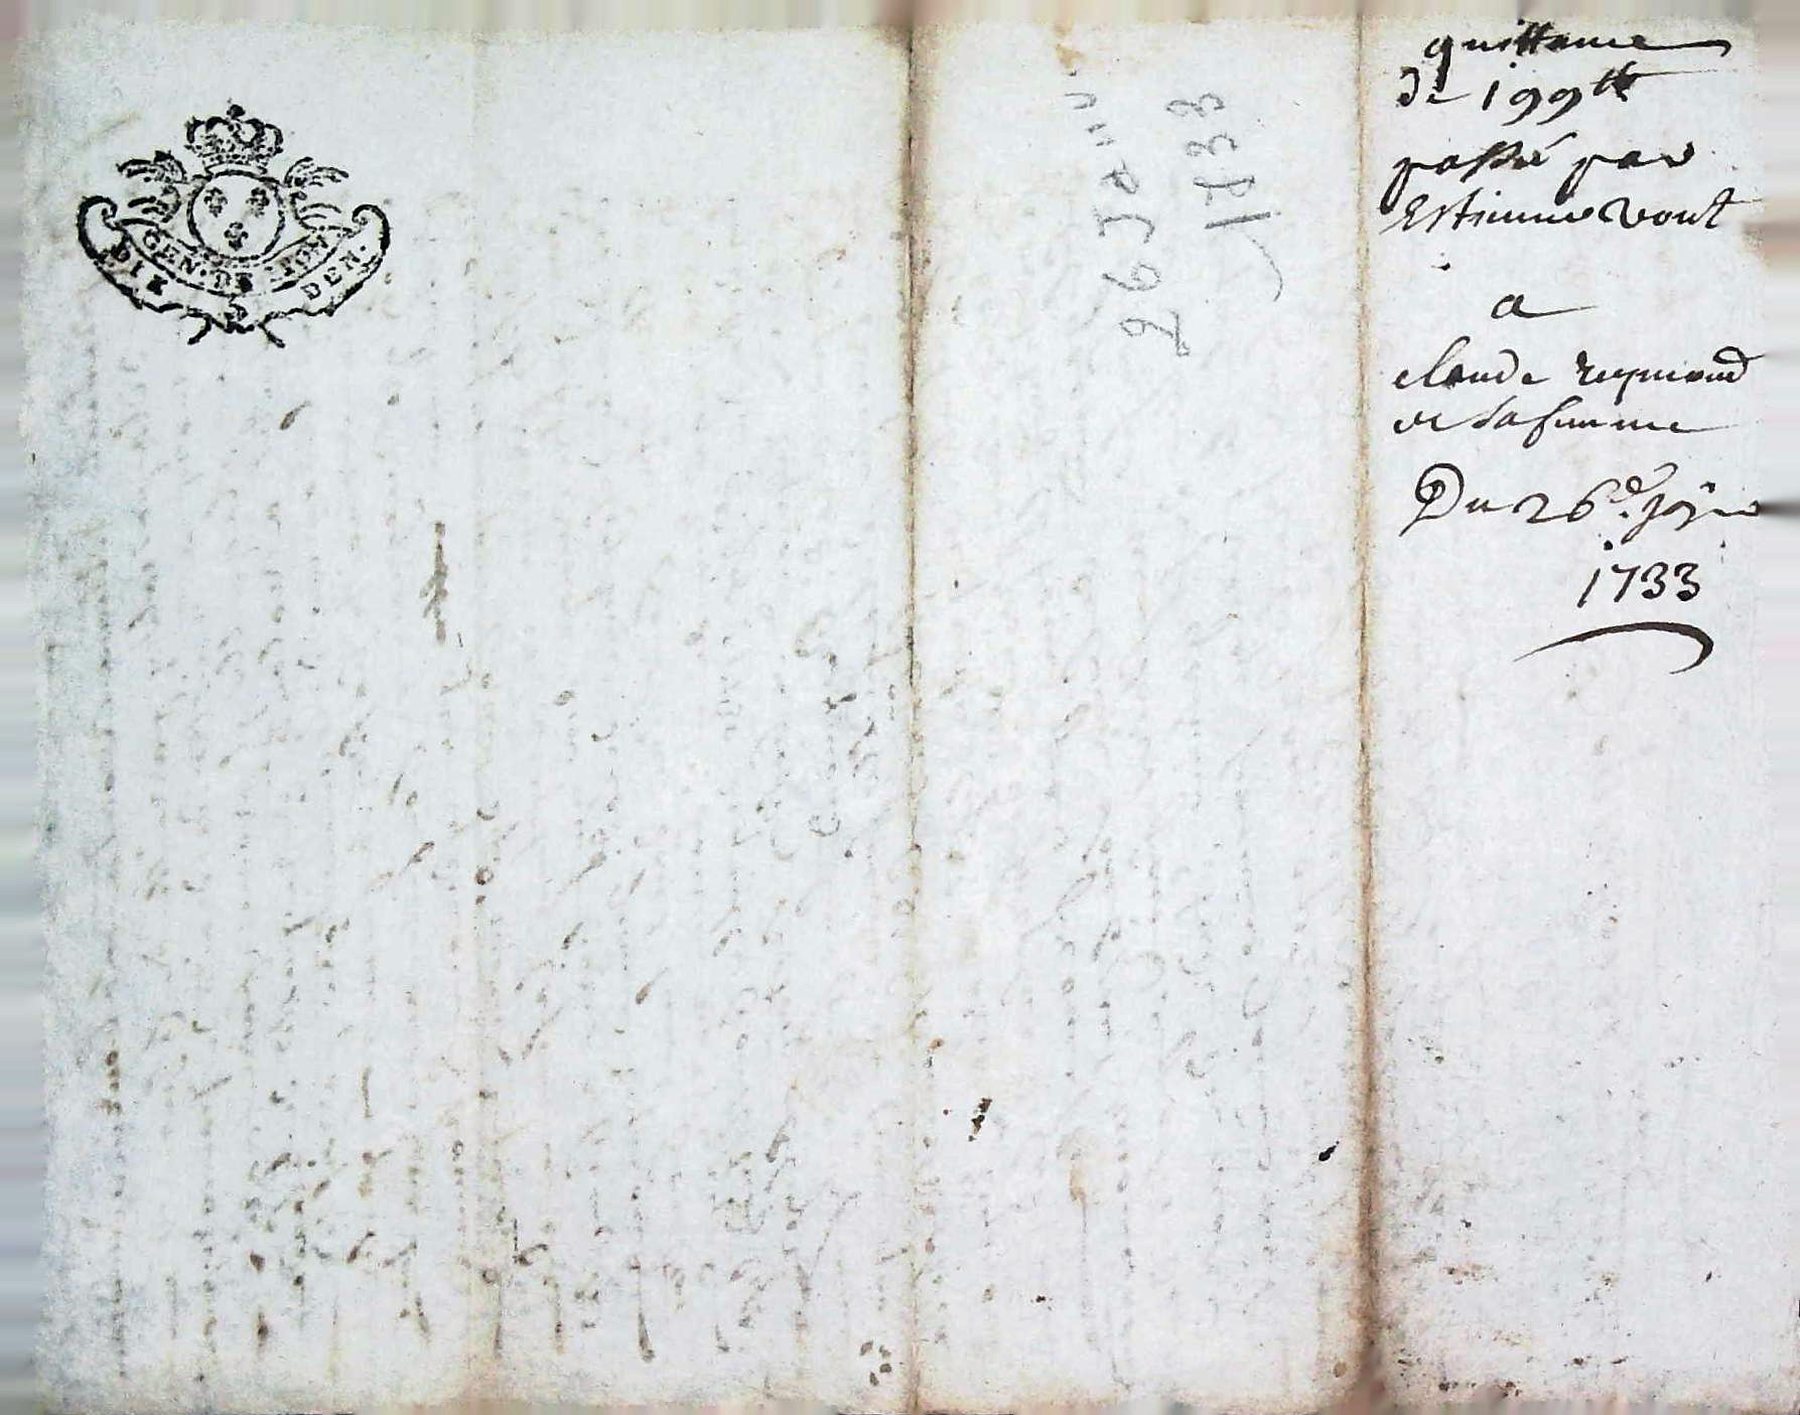 GEN. DE
DIX DEN.
26 Janv.
1733
quittance
de 199 ₶
passé par
Estienne vout
a
claude reymond
et sa femme
Du 26e.
1733